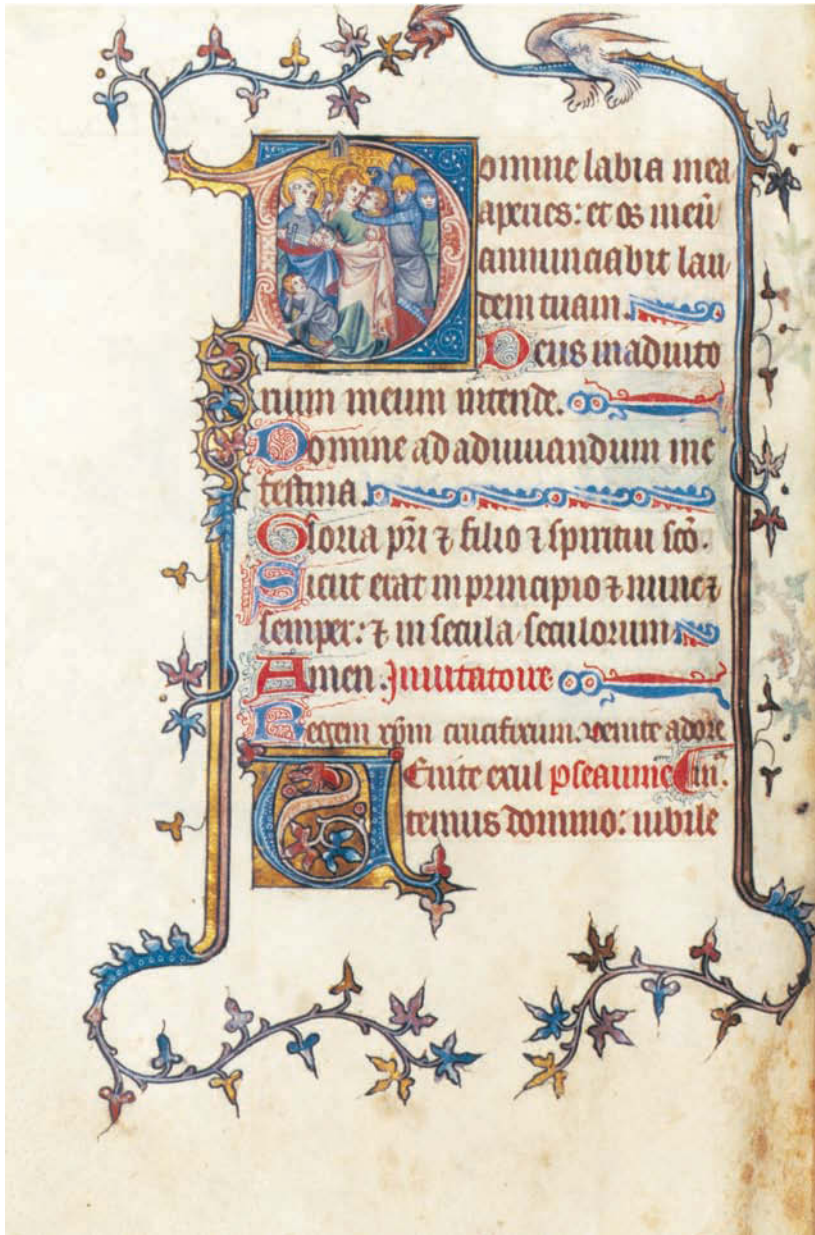 Domine labia mea
aperies: et os meū
annunciabit lau
dem tuam.
Deus in adiuto
rium meum intende.
Domine ad adiuuandum me
festina.
Gloria pr̄i ⁊ filio ⁊ spiritui sc̄o.
Sicut erat in principio ⁊ nunc ⁊
semper: ⁊ in secula seculorum
Amen. Inuitatoire
Regem xp̄m crucifixum. venite adore
Venite exul pseaume
temus domino: iubile